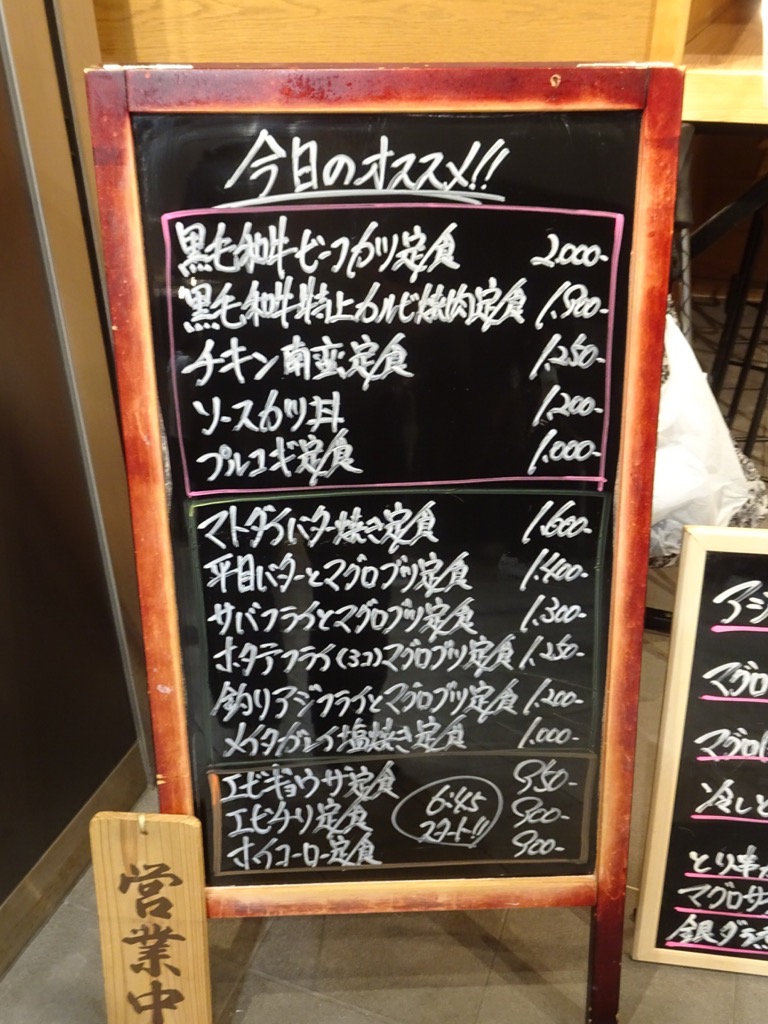 今日のオススメ!!
黒毛和牛ビーフカツ定食 2,000-
黒毛和牛特上カルビ焼肉定食 1,900-
チキン南蛮定食 1,250-
ソースカツ丼 1,200-
プルコギ定食 1,000-
マトダイバター焼き定食 1,600-
平目バターとマグロブツ定食 1,400-
サバフライとマグロブツ定食 1,300-
ホタテフライ(3コ)マグロブツ定食 1,250-
釣りアジフライとマグロブツ定食 1,200-
メイタガレイ塩焼き定食 1,000-
エビギョウザ定食 950-
エビチリ定食 900-
ホイコーロー定食 900-
6:45
スタート!!
営業中
アジ
マグロ
マグロ
冷し
とり串
マグロサ
銀ダラ